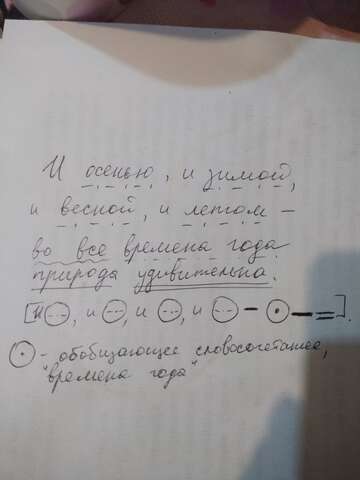 И осенью, и зимой,
и весной, и летом –
во все времена года
природа удивительна.
[И, и, и, и – — =].
– обобщающее словосочетание,
"времена года"